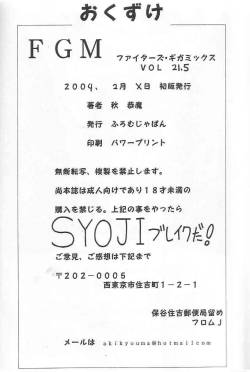 おくずけ
FGM
ファイターズ・ギガミックス
VOL 21.5
2009、 2月 X日 初版発行
著者 秋 恭魔
発行 ふろむじゃぱん
印刷 パワープリント
無断転写、複製を禁止します。
尚本誌は成人向けであり18才未満の
購入を禁じる。上記の事をやったら
SYOJIブレイクだ!
ご意見、ご感想は下記まで
〒202-0005
西東京市住吉町1-2-1
保谷住吉郵便局留め
フロムJ
メールは akikyouma@hotmail.com